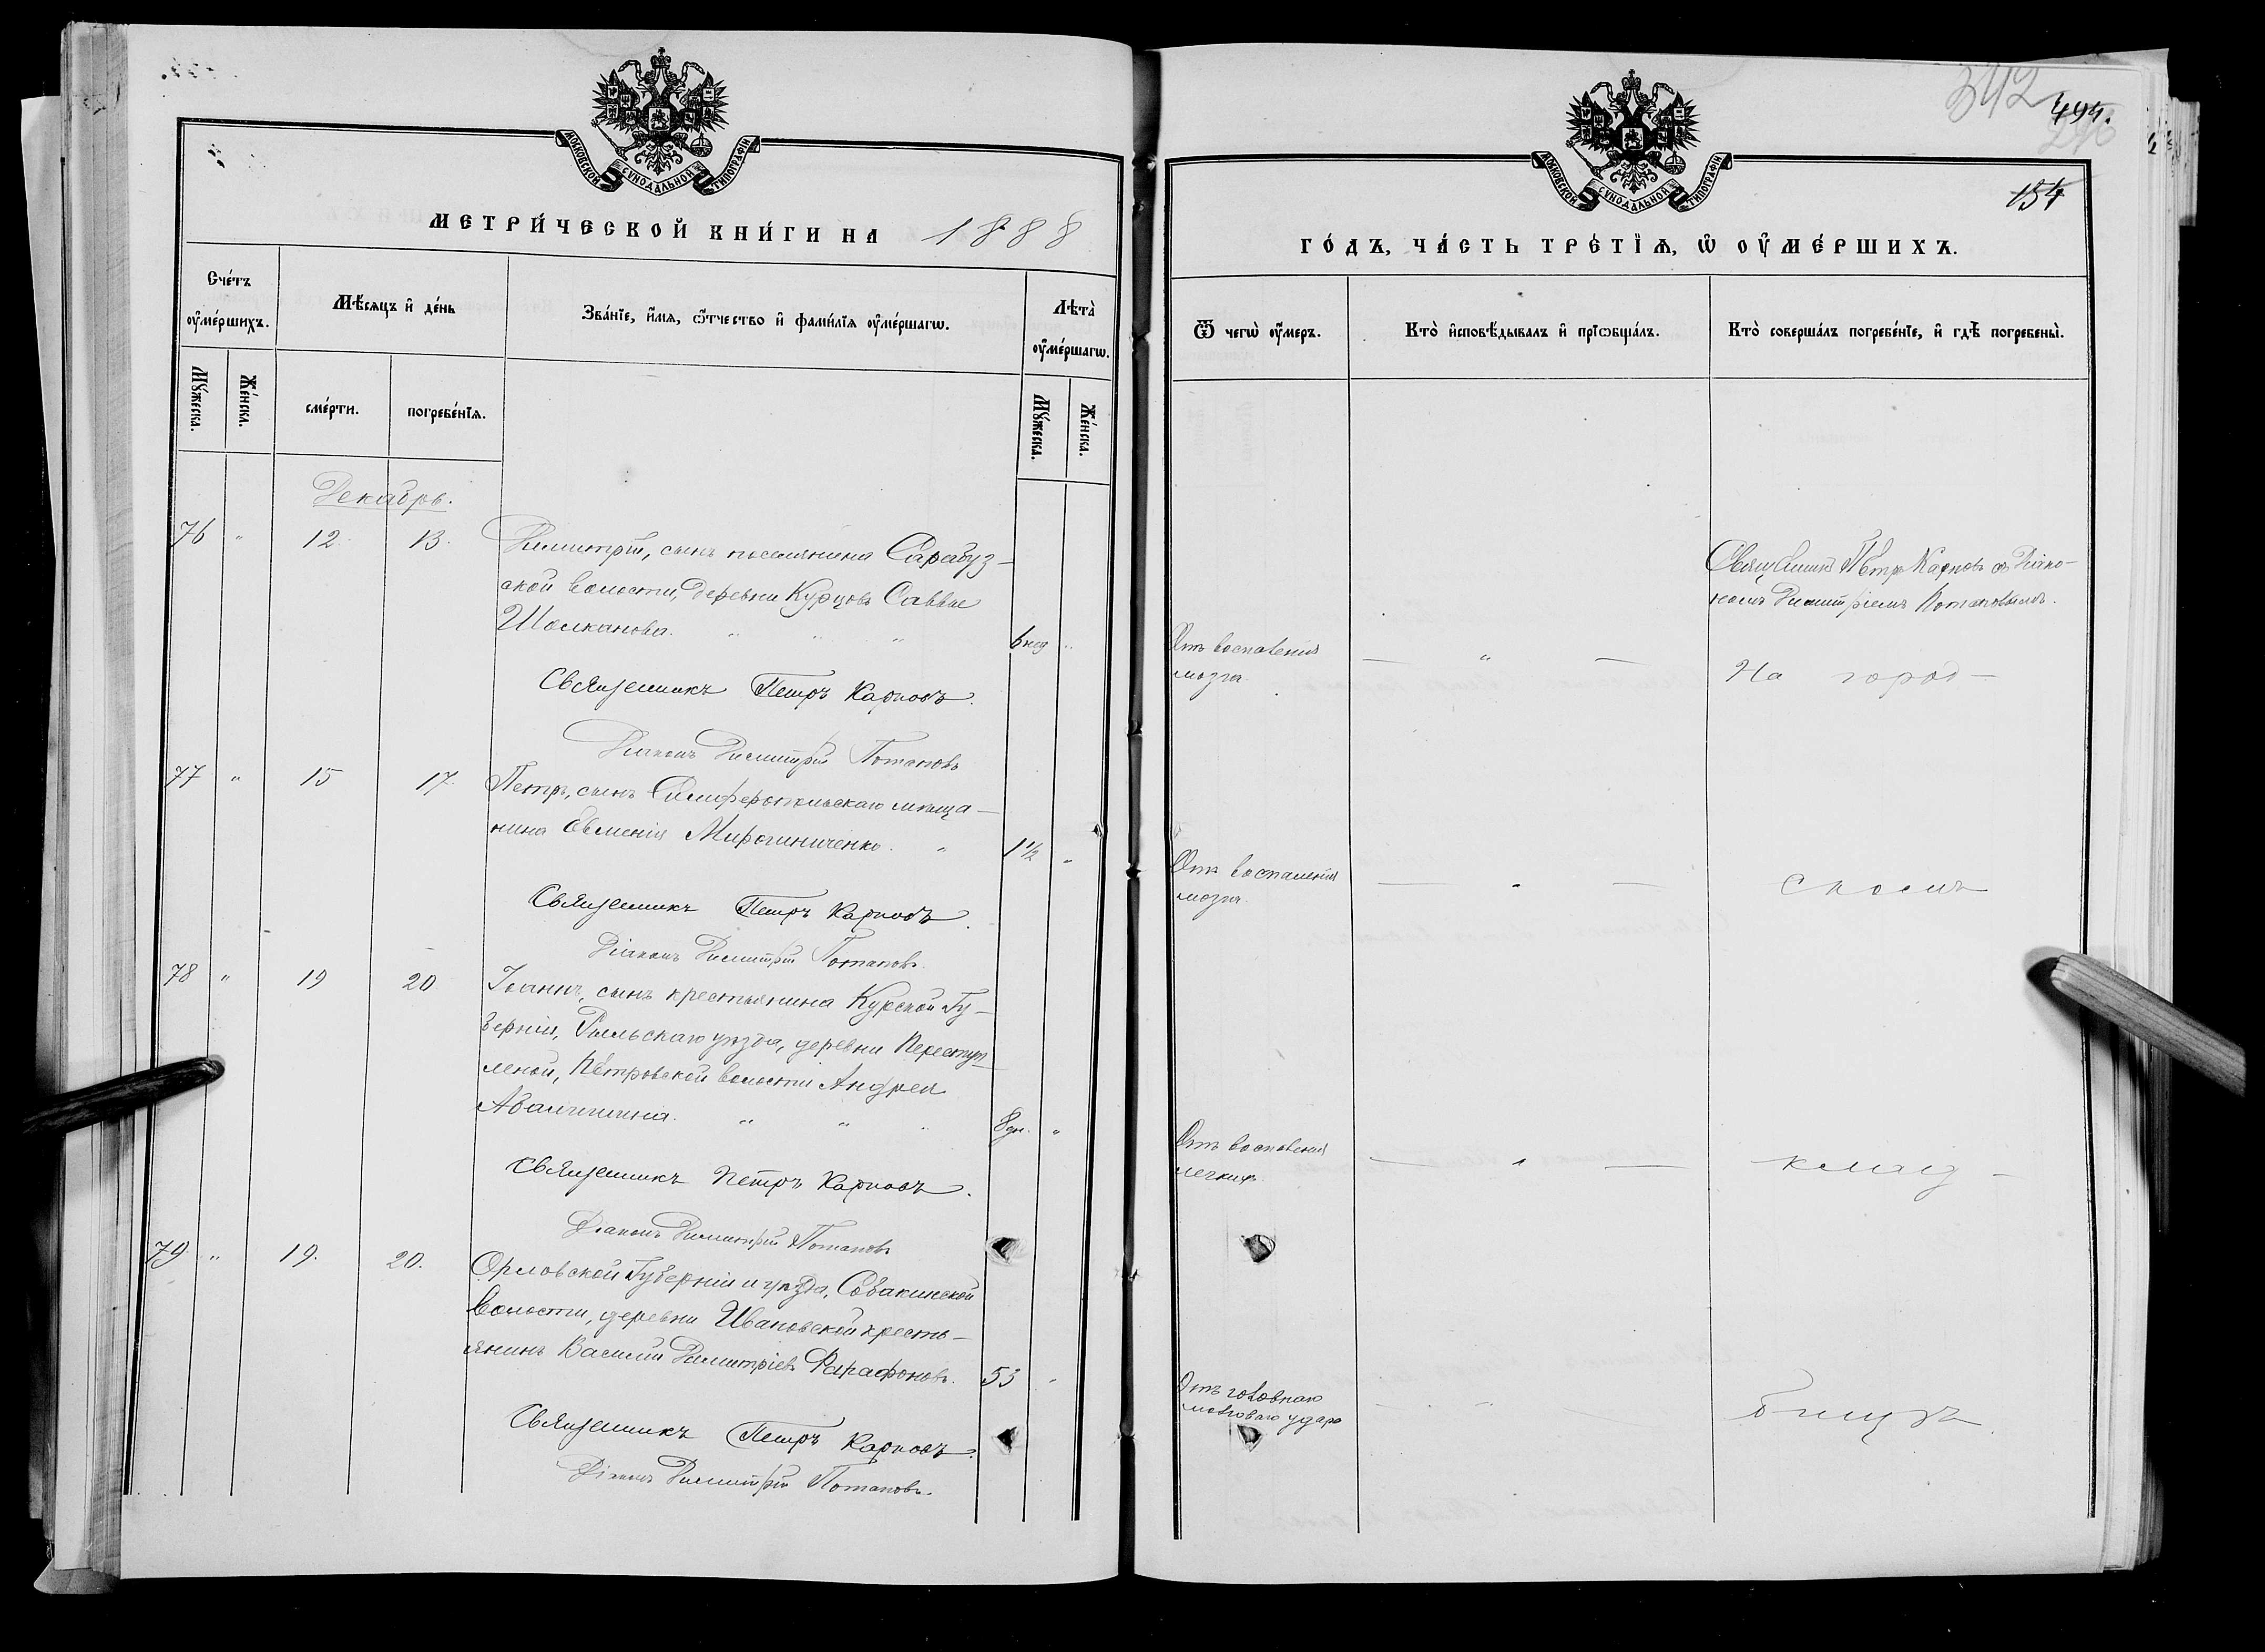 МОСКОВСКОЙ СУНОДАЛЬНОЙ ТИПОГРАФІИ
МЕТРИ́ЧЕСКОЙ КНИ́ГИ НА 1888
Сче́тъ ᲂу҆ме́ршихъ.
Мѣ́сяцъ и҆ де́нь
Зва́нїе, и҆́мѧ, ѻ҆́тчество и҆ фами́лїѧ ᲂу҆ме́ршагѡ.
Лѣта̀ ᲂу҆ме́ршагѡ.
Мꙋ́жеска.
Же́нска.
сме́рти.
погребе́нїѧ.
Мꙋ́жеска.
Же́нска.
Декабрь.
76 " 12. 13. Димитрій, сынъ поселянина Сарабуз-
ской волости, деревни Курцовъ Саввы
Шолканова. " " " 6 нед "
Священникъ Петръ Карповъ.
Діаконъ Димитрій Потаповъ
77 " 15 17. Петръ, сынъ Симферопольскаго мѣща-
нина Евменія Мирошниченко. " 1½ "
Священникъ Петръ Карповъ.
Діаконъ Димитрій Потаповъ.
78 " 19 20. Іоаннъ, сынъ крестьянина Курской Гу-
берніи, Рыльскаго уѣзда, деревни Переступ-
леной, Петровской волости Андрея
" " " 8 дн. "
Священникъ Петръ Карповъ.
Діаконъ Димитрій Потаповъ
79. " 19. 20. Орловской Губерніи и уѣзда, Собакинской
волости, деревни Ивановской кресть-
янинъ Василій Димитріевъ Фарафоновъ. 53 "
Священникъ Петръ Карповъ.
Діаконъ Димитрій Потаповъ.
342
494.
154
МОСКОВСКОЙ СУНОДАЛЬНОЙ ТИПОГРАФІИ
ГО́ДЪ, ЧА́СТЬ ТРЕ́ТЇѦ, Ѡ҆ ОУ҆МЕ́РШИХЪ.
Ѿ чегѡ̀ ᲂу҆́меръ.
Кто̀ и҆сповѣ́дывалъ и҆ прїѡбща́лъ.
Кто̀ соверша́лъ погребе́нїе, и҆ гдѣ̀ погребены̀.
Священникъ Петръ Карповъ съ Діако-
номъ Димитріемъ Потаповымъ.
Отъ воспаленія
мозга. — " — На город-
Отъ воспаленія
мозга. — " — скомъ
Отъ воспаленія
легкихъ. — " — клад-
Отъ головнаго
мозговаго удара — " — бищѣ